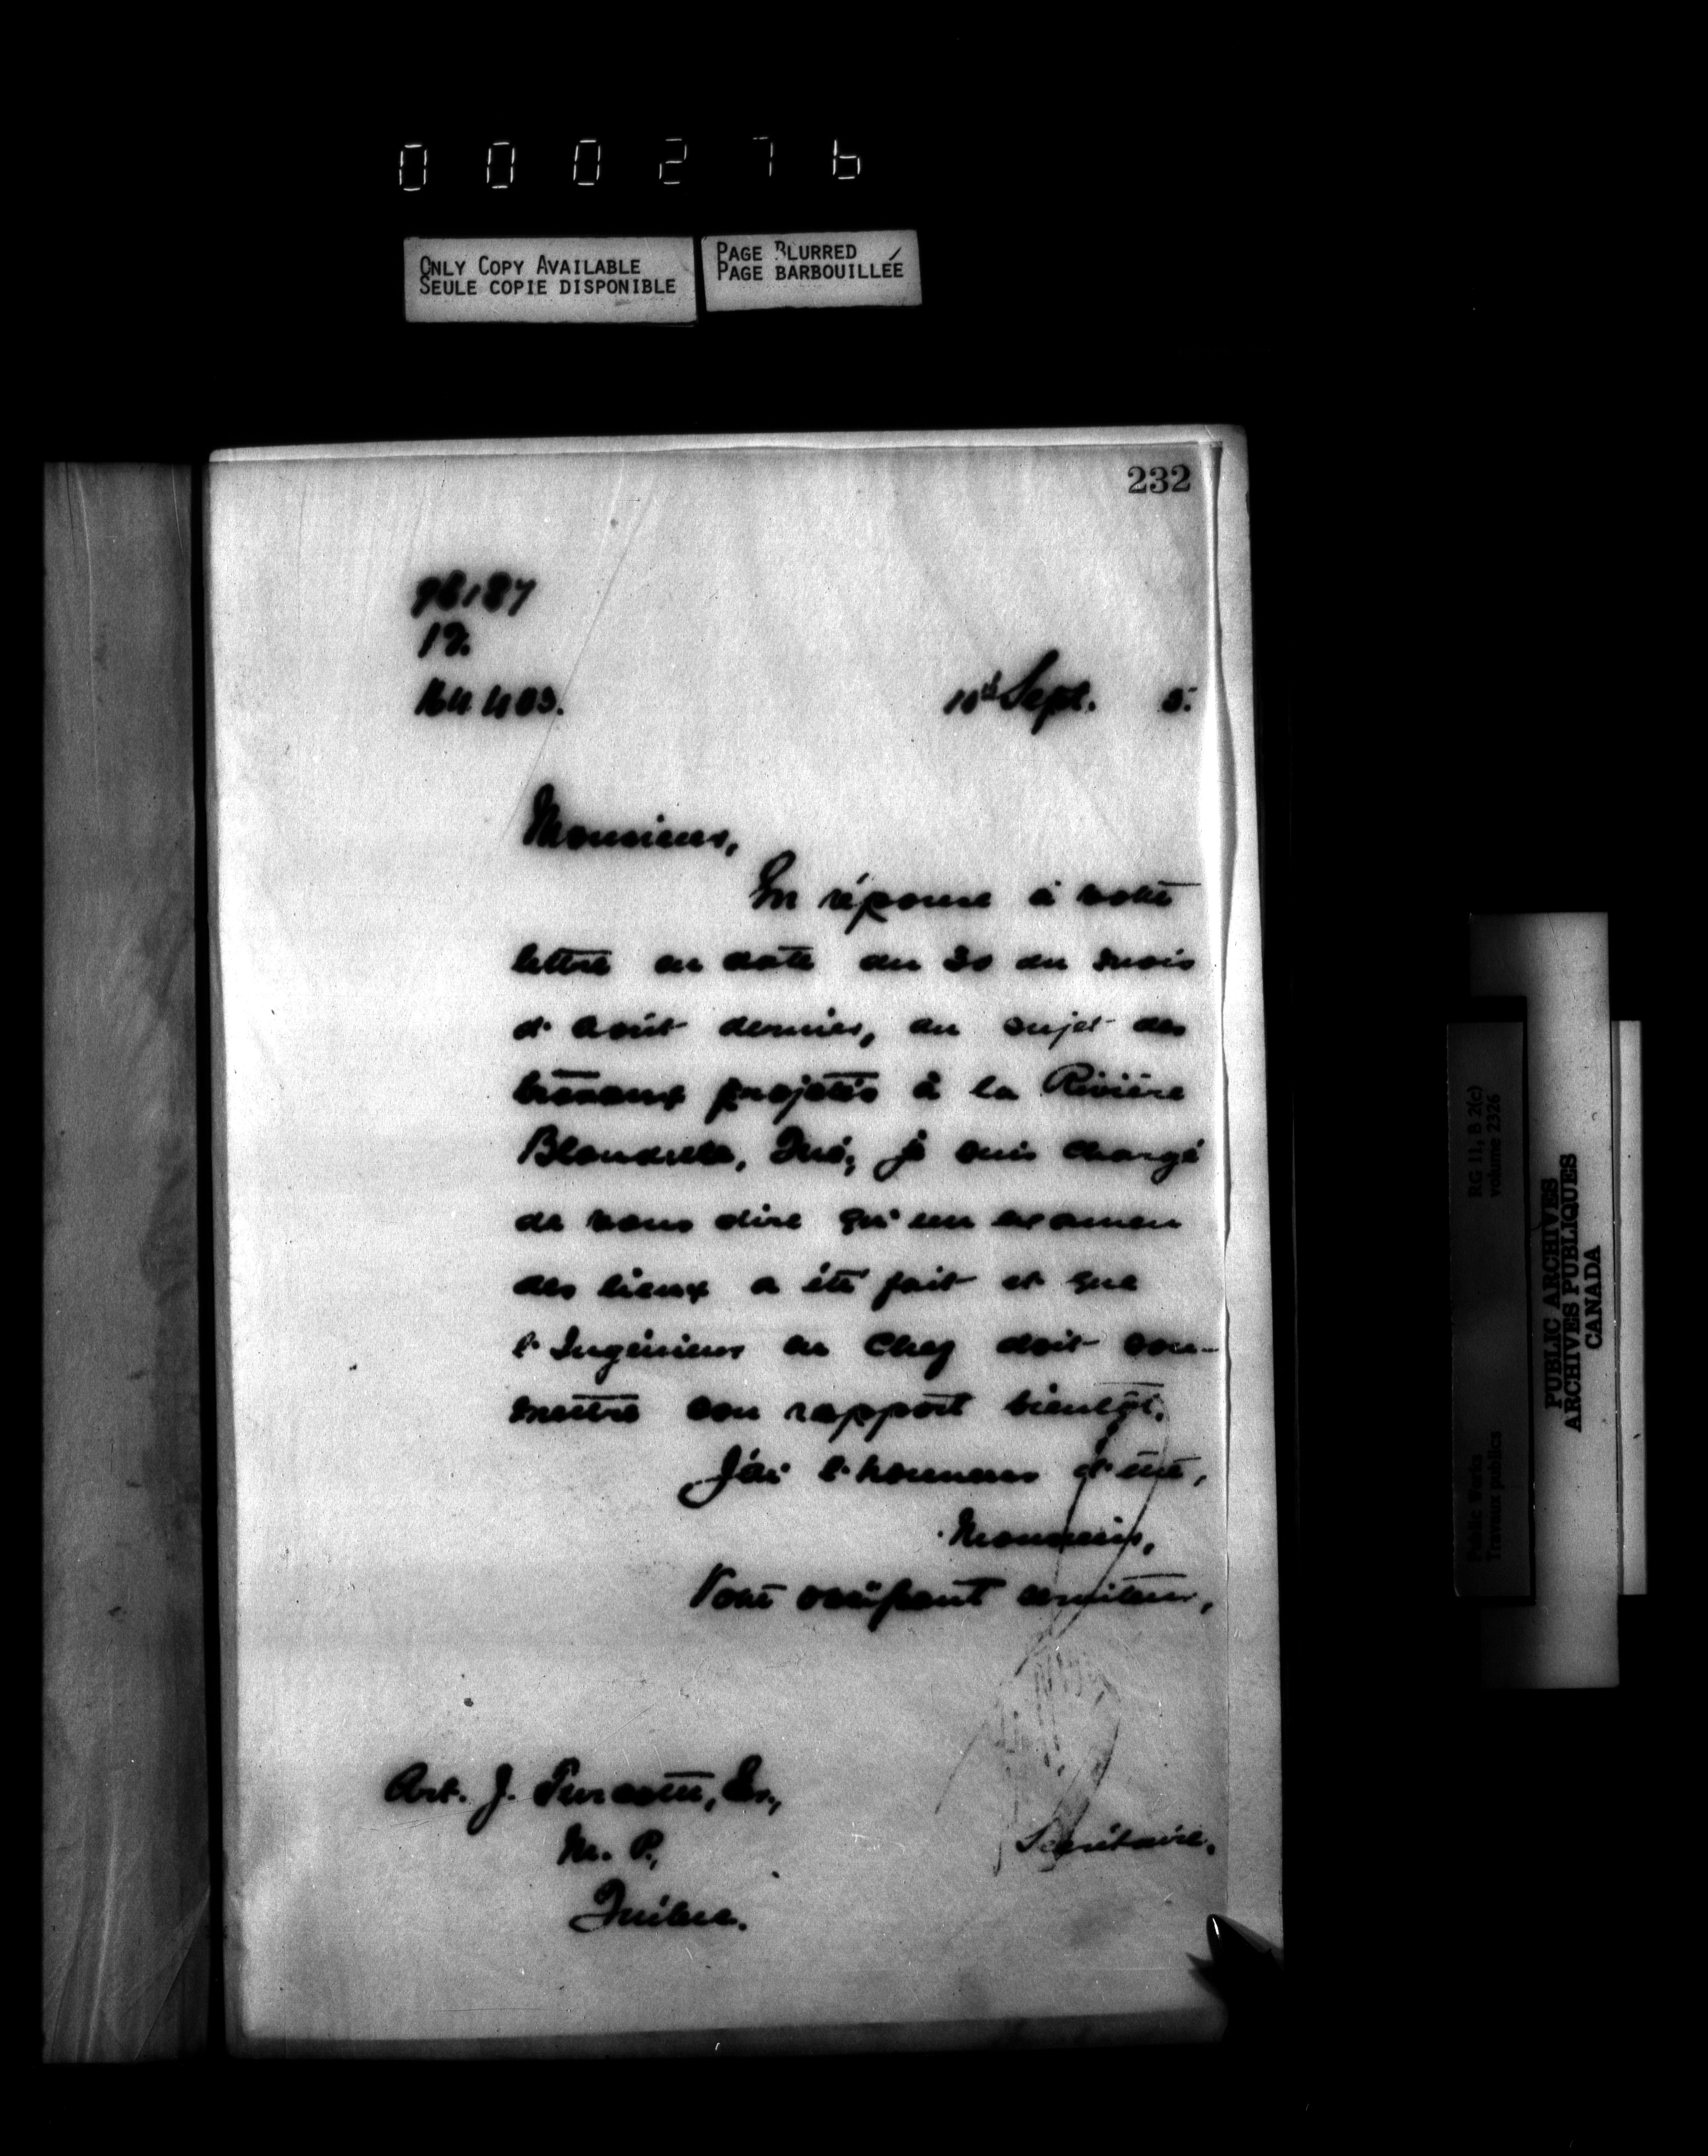 000276
ONLY COPY AVAILABLE
SEULE COPIE DISPONIBLE
PAGE BLURRED
PAGE BARBOUILLÉE
232
Sept. 5.
Monsieur,
En réponse à votre
lettre en date du 30 du mois
d'août dernier, au sujet des
travaux projetés à la Rivière
Blondelle, Qué; je suis chargé
de vous dire qu'un examen
des lieux a été fait et que
l'Ingénieur en Chef doit sou-
mettre son rapport bientôt.
J'ai l'honneur d'être,
Monsieur,
Votre obéissant serviteur,
Secrétaire.
Art. J. Turcotte, Er.,
M. P.,
Québec.
RG 11, B 2(c)
volume 2326
Public Works
Travaux publics
PUBLIC ARCHIVES
ARCHIVES PUBLIQUES
CANADA